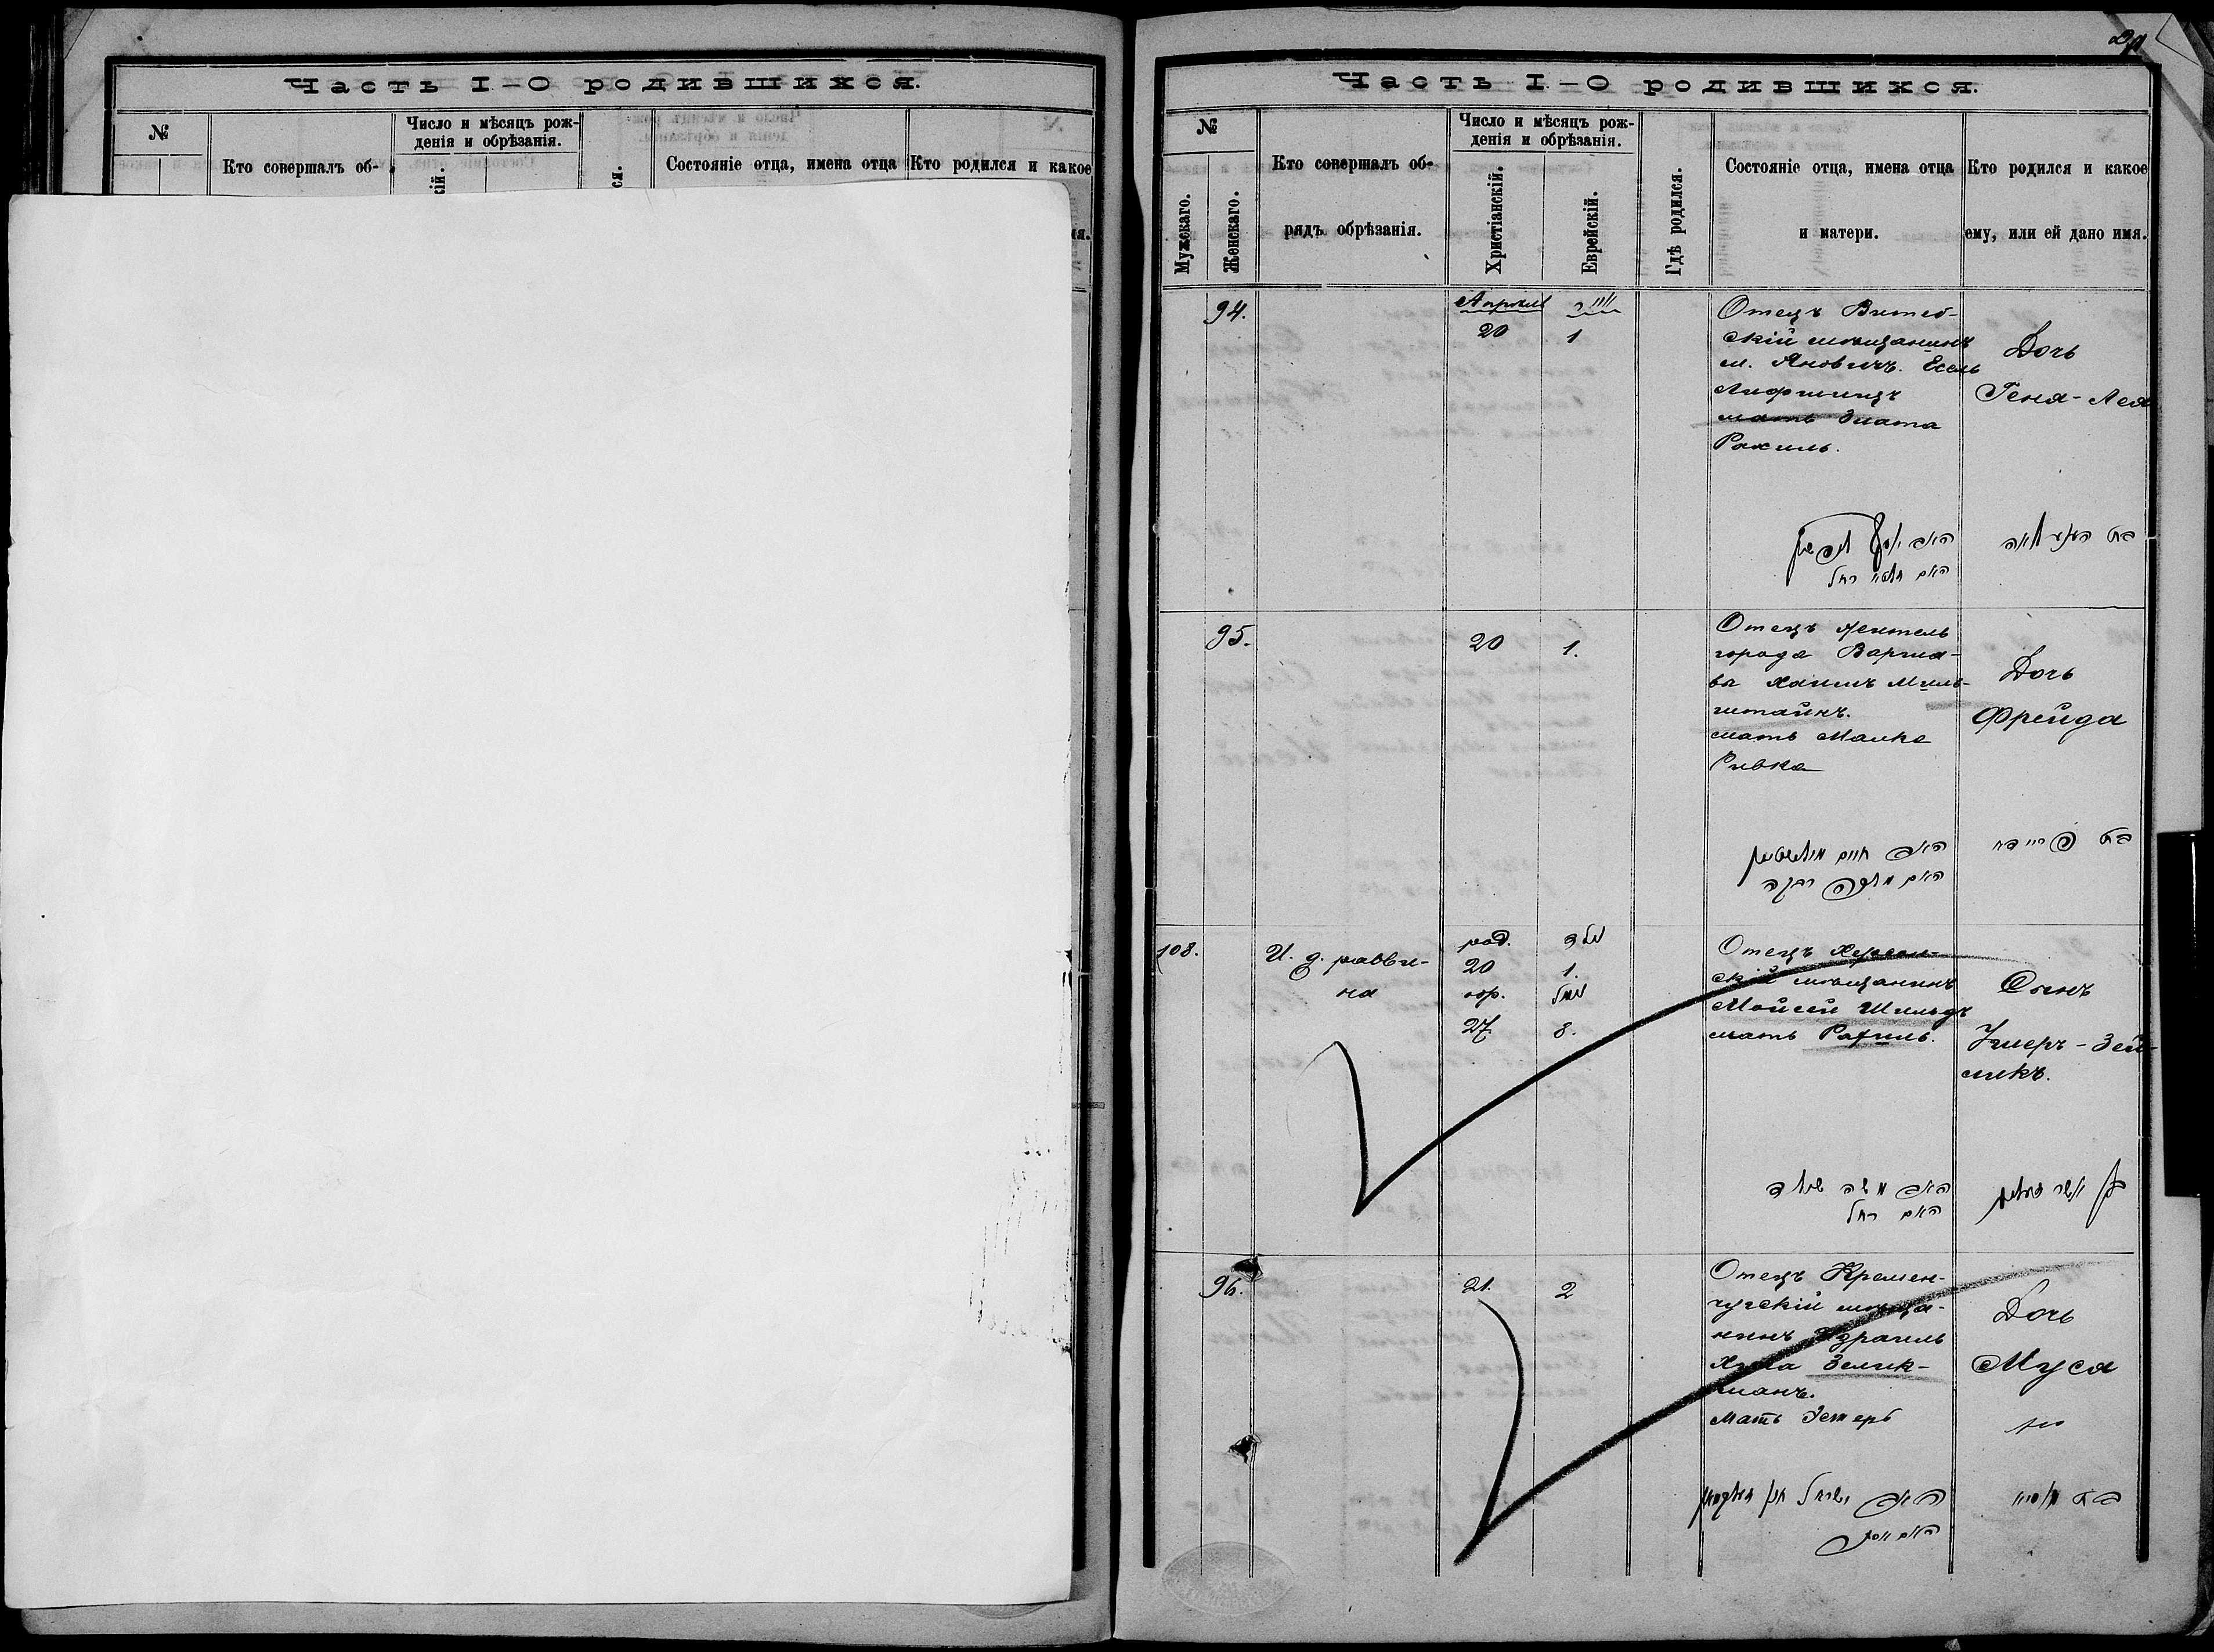 Часть I-О родившихся.
№
Кто совершалъ об-
Число и мѣсяцъ рож-
денія и обрѣзанія.
Состояніе отца, имена отца
Кто родился и какое
Часть I-О родившихся.
№
Мужскаго.
Женскаго.
Кто совершалъ об-
рядъ обрѣзанія.
Число и мѣсяцъ рож-
денія и обрѣзанія.
Христіанскій.
Еврейскій.
Гдѣ родился.
Состояніе отца, имена отца
и матери.
Кто родился и какое
ему, или ей дано имя.
94.
Апрель
20
1
Отецъ Витеб-
скій мѣщанинъ
м. Яновичъ. Есель
Лифшицъ
мать Злата
Рахиль.
Дочь
Геня-Лея
האם זלאטא רחל
95.
20
1.
Отецъ житель
города Варша-
вы Хаимъ Миль-
штайнъ.
мать Малка
Ривка
Дочь
Фрейда
האב חיים מילשטיין
האם מלכה רבקה
בת פריידא
108.
И. д. равви-
на
род.
20
1.
обр.
27
8.
Отецъ Херсон-
скій мѣщанинъ
Мойсей Шильдъ
мать Рахиль.
Сынъ
האב משה שילד
האם רחל
96.
21.
2
Отецъ Кремен-
чугскій мѣща-
нинъ Израиль
Зелик-
манъ.
Мать Эстеръ
Дочь
Муся
האם אסתר